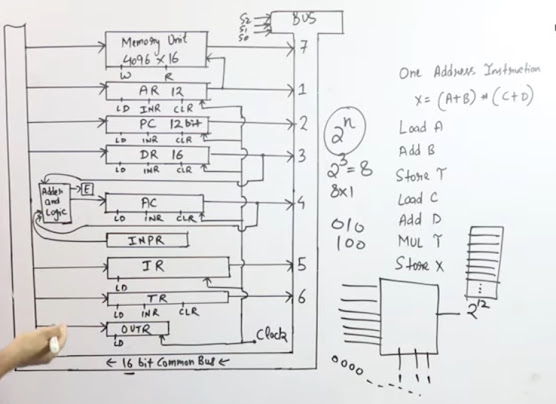 S2
S1
S0
BUS
Memory Unit
4096 × 16
W R
7
AR 12
LD INR CLR
1
PC 12bit
LD INR CLR
2
DR 16
LD INR CLR
3
Adder
and
Logic
E
AC
LD INR CLR
4
INPR
IR
LD
5
TR
LD INR CLR
6
OUTR
LD
Clock
← 16 bit Common Bus ←
2^n
2^3 = 8
8x1
010
100
One Address Instruction
X = (A+B) * (C+D)
Load A
Add B
Store T
Load C
Add D
MUL T
Store X
2^12
0000